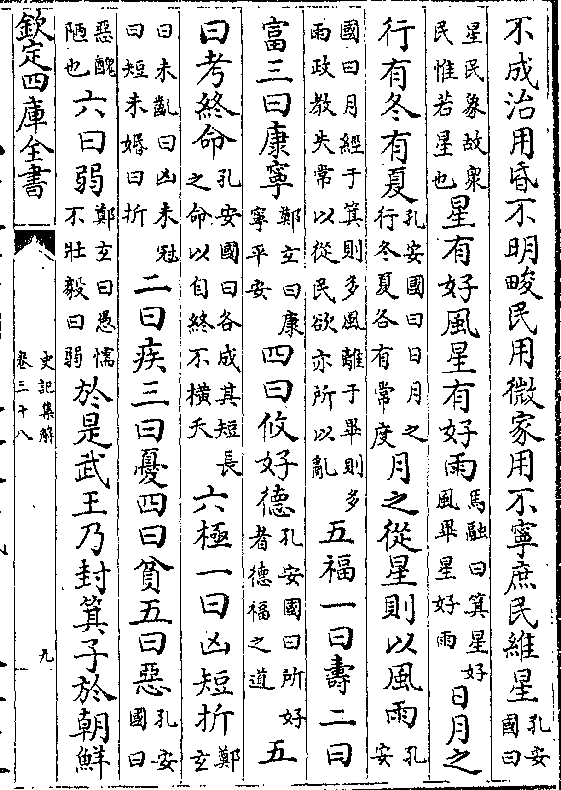 不成治用昏不明畯民用微家用不寧庶民維星孔安國曰
星民象故衆民惟若星也星有好風星有好雨馬融曰箕星好風畢星好雨日月之
行有冬有夏孔安國曰日月之行冬夏各有常度月之從星則以風雨孔安
國曰月經于箕則多風離于畢則多雨政教失常以從民欲亦所以亂五福一曰壽二曰
富三曰康寧鄭玄曰康寧平安四曰攸好德孔安國曰所好者德福之道五
曰考終命孔安國曰各成其短長之命以自終不橫夭六極一曰凶短折鄭玄
曰未齓曰凶未冠曰短未婚曰折二曰疾三曰憂四曰貧五曰惡孔安國曰
惡醜陋也六曰弱鄭玄曰愚懦不壯毅曰弱於是武王乃封箕子於朝鮮
欽定四庫全書
史記集解
卷三十八
九